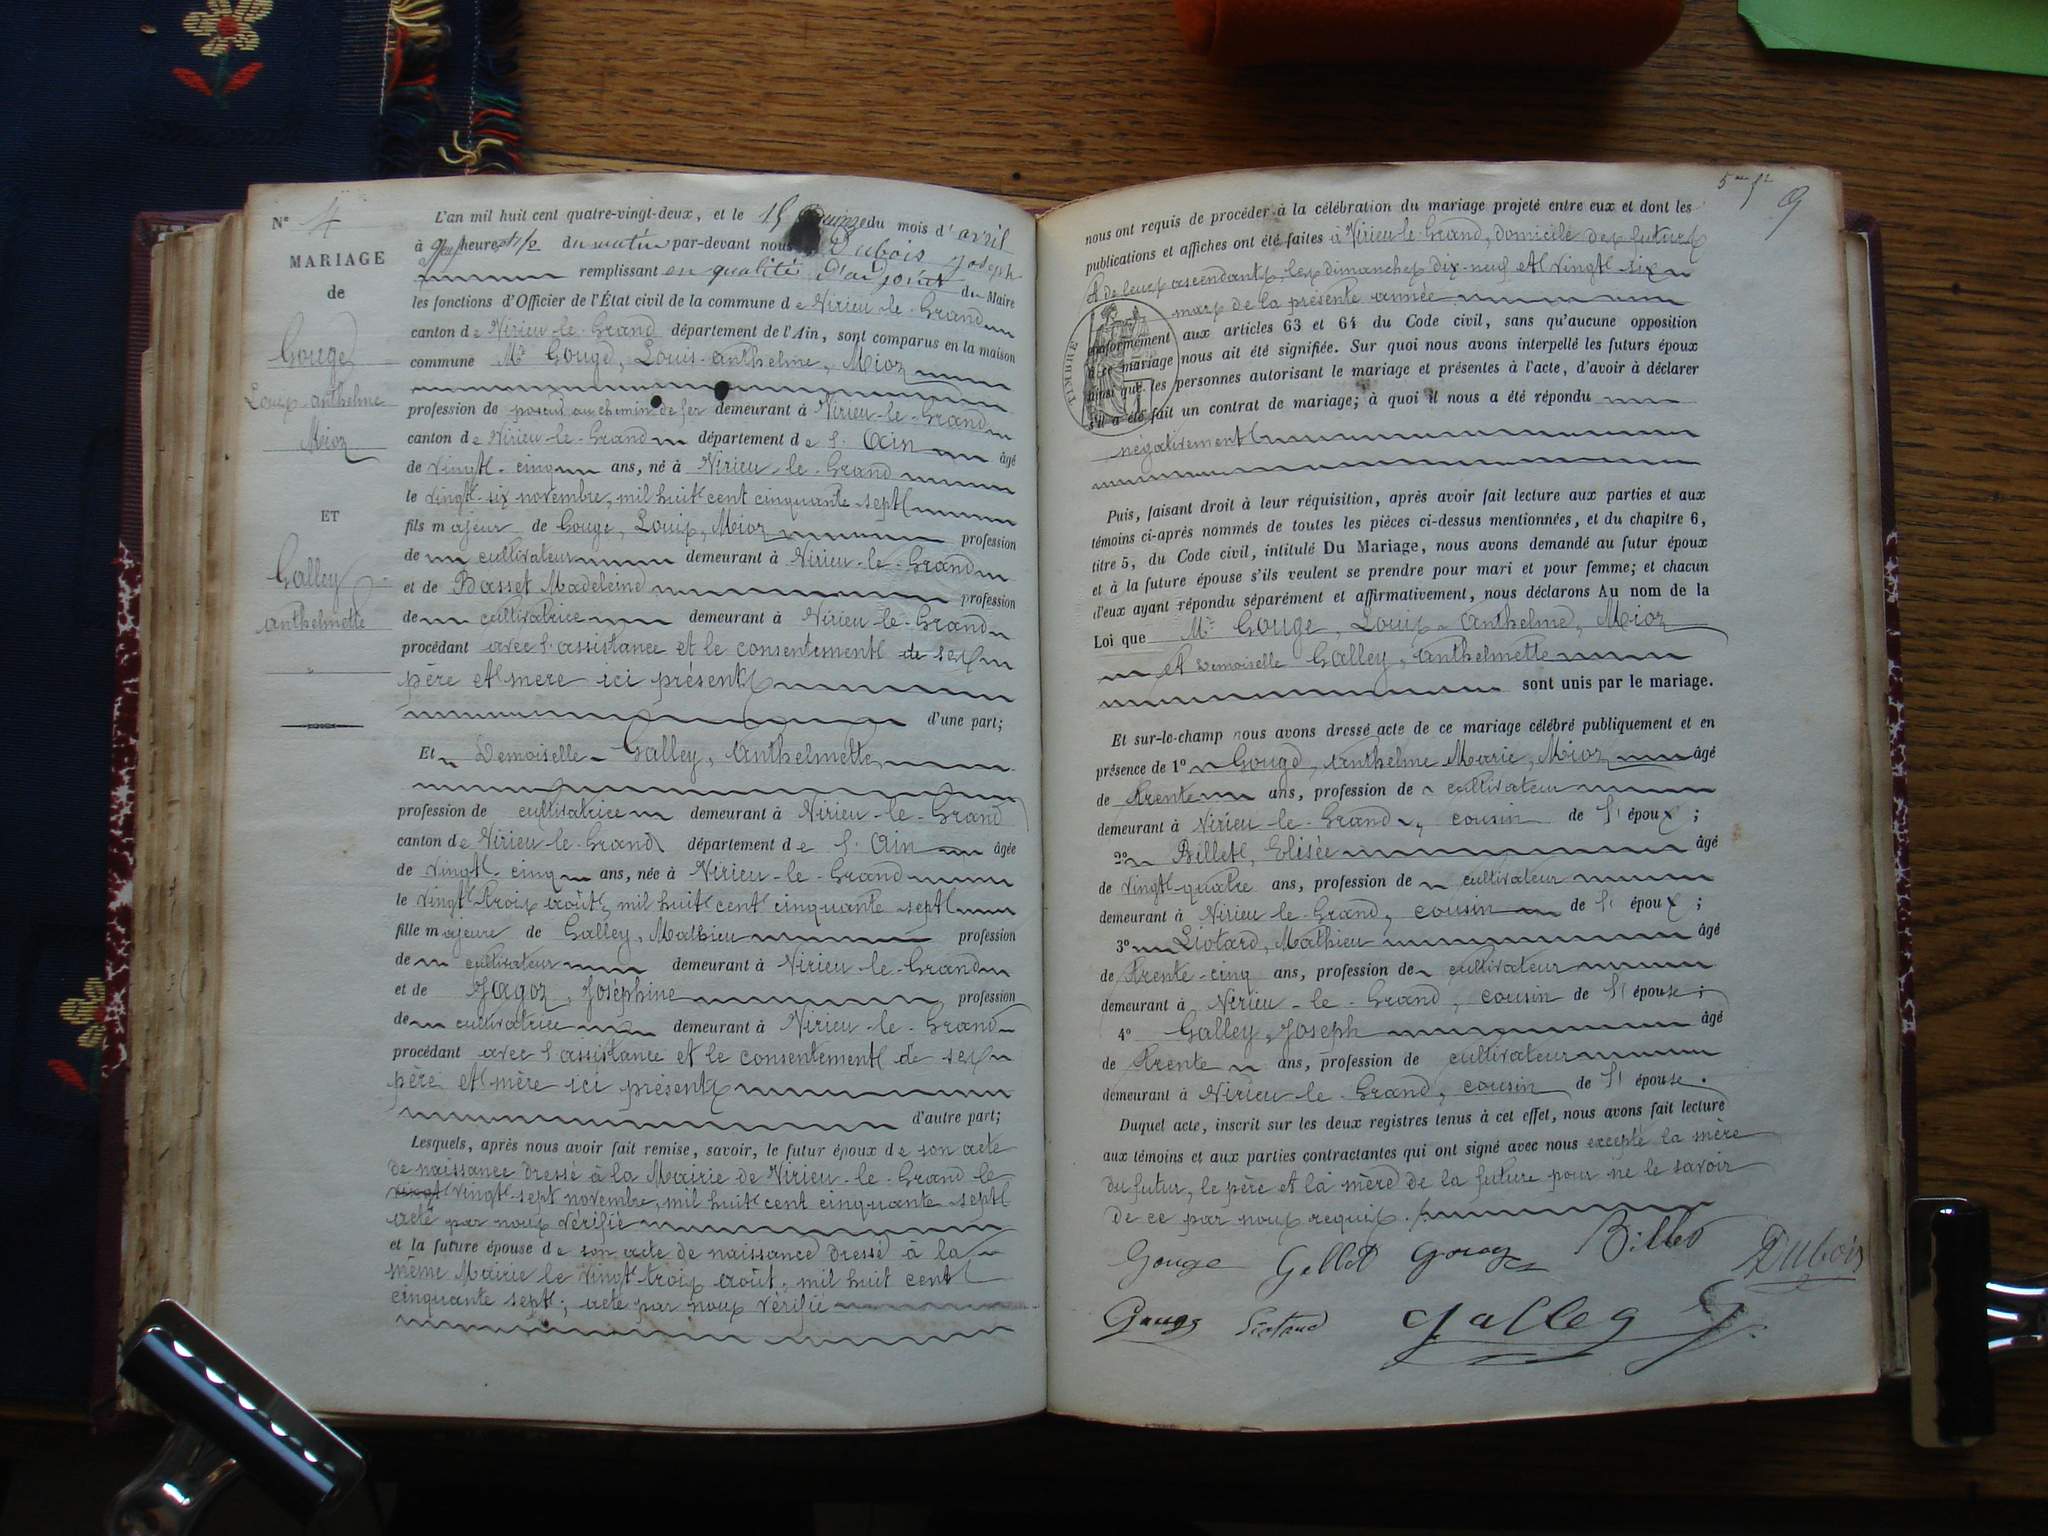 N° 4
MARIAGE
de
Gouge
Louis Anthelme
Mioz
ET
Galley
Anthelmette
L'an mil huit cent quatre-vingt-deux, et le 15 quinze du mois d'avril
à heures 1/2 du matin par-devant nous Dubois Joseph
remplissant en qualité d'adjoint du Maire
les fonctions d'Officier de l'État civil de la commune de Virieu-le-Grand
canton de Virieu-le-Grand département de l'Ain, sont comparus en la maison
commune Mr Gouge, Louis-Anthelme, Mioz
profession de poseur au chemin de fer demeurant à Virieu-le-Grand
canton de Virieu-le-Grand département de l'Ain âgé
de vingt-cinq ans, né à Virieu-le-Grand
le vingt-six novembre, mil huit cent cinquante-sept
fils majeur de Gouge, Louis, Mioz profession
de cultivateur demeurant à Virieu-le-Grand
et de Basset Madeleine profession
de cultivatrice demeurant à Virieu-le-Grand
procédant avec l'assistance et le consentement de ses
père et mere ici présents
d'une part;
Et Demoiselle Galley, Anthelmette
profession de cultivatrice demeurant à Virieu-le-Grand
canton de Virieu-le-Grand département de l'Ain âgée
de vingt-cinq ans, née à Virieu-le-Grand
le vingt trois août, mil huit cent cinquante sept
fille majeure de Galley, Mathieu profession
de cultivateur demeurant à Virieu-le-Grand
et de Jagoz, Joséphine profession
de cultivatrice demeurant à Virieu-le-Grand
procédant avec l'assistance et le consentement de ses
père et mère ici présents
d'autre part;
Lesquels, après nous avoir fait remise, savoir, le futur époux de son acte
de naissance dressé à la Mairie de Virieu-le-Grand le
vingt vingt-sept novembre, mil huit cent cinquante-sept
acte par nous vérifié
et la future épouse de son acte de naissance dressé à la
même Mairie le vingt-trois août, mil huit cent
cinquante sept; acte par nous vérifié
9
nous ont requis de procéder à la célébration du mariage projeté entre eux et dont les
publications et affiches ont été faites à Virieu-le-Grand, domicile des futurs
et de leurs ascendants, les dimanches dix-neuf et vingt-six
mars de la présente année
conformément aux articles 63 et 64 du Code civil, sans qu'aucune opposition
à ce mariage nous ait été signifiée. Sur quoi nous avons interpellé les futurs époux
ainsi que les personnes autorisant le mariage et présentes à l'acte, d'avoir à déclarer
s'il a été fait un contrat de mariage; à quoi il nous a été répondu
négativement
TIMBRE
Puis, faisant droit à leur réquisition, après avoir fait lecture aux parties et aux
témoins ci-après nommés de toutes les pièces ci-dessus mentionnées, et du chapitre 6,
titre 5, du Code civil, intitulé Du Mariage, nous avons demandé au futur époux
et à la future épouse s'ils veulent se prendre pour mari et pour femme; et chacun
d'eux ayant répondu séparément et affirmativement, nous déclarons Au nom de la
Loi que Mr Gouge, Louis-Anthelme, Mioz
et Demoiselle Galley, Anthelmette
sont unis par le mariage.
Et sur-le-champ nous avons dressé acte de ce mariage célébré publiquement et en
présence de 1° Gouge, Anthelme Marie, Mioz âgé
de trente ans, profession de cultivateur
demeurant à Virieu-le-Grand, cousin de l'époux;
2° Billet, Elisée âgé
de vingt quatre ans, profession de cultivateur
demeurant à Virieu le-Grand, cousin de l'époux;
3° Liotard, Mathieu âgé
de trente-cinq ans, profession de cultivateur
demeurant à Virieu-le-Grand, cousin de l'épouse;
4° Galley, Joseph âgé
de trente ans, profession de cultivateur
demeurant à Virieu-le-Grand, cousin de l'épouse.
Duquel acte, inscrit sur les deux registres tenus à cet effet, nous avons fait lecture
aux témoins et aux parties contractantes qui ont signé avec nous excepté la mère
du futur, le père et la mère de la future pour ne le savoir
de ce par nous requis.
Gouge Gallet Gouge Billet Dubois
Gouge Liotard Galley